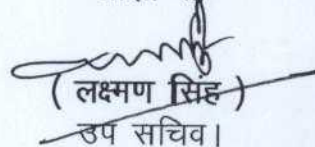 ( लक्ष्मण सिंह )
उप सचिव।